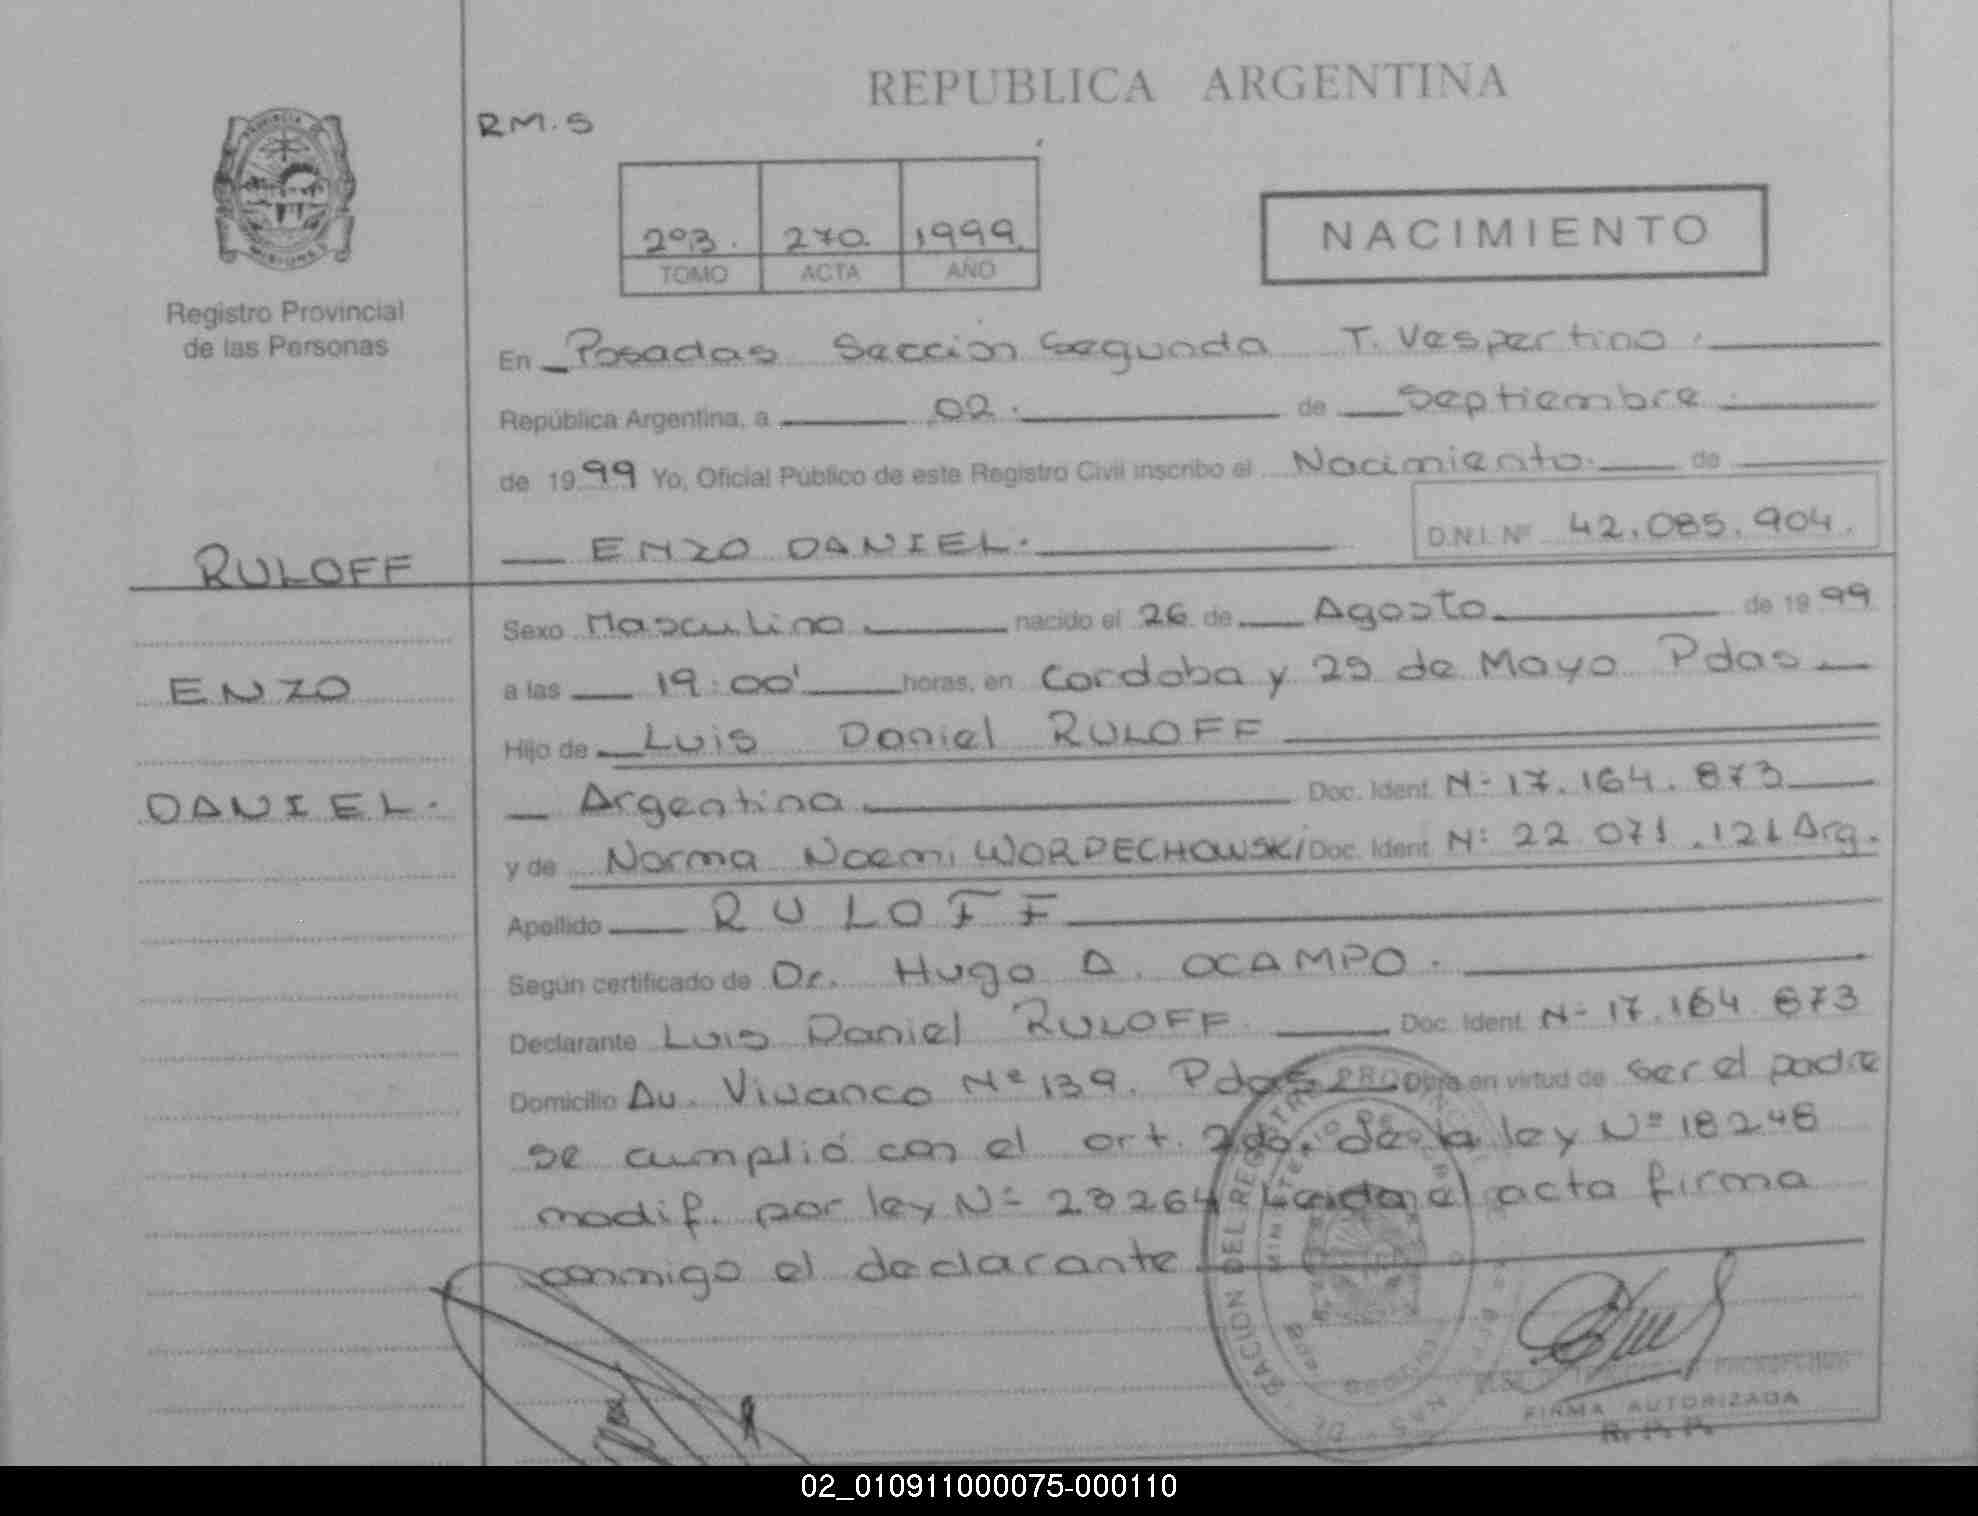 REPUBLICA ARGENTINA
RM.S
203. 270. 1999.
TOMO ACTA AÑO
NACIMIENTO
PROVINCIA DE
MISIONES
Registro Provincial
de las Personas
En Posadas Sección Segunda T. Vespertino.
República Argentina, a 02. de Septiembre.
de 1999 Yo, Oficial Público de este Registro Civil inscribo el Nacimiento. de
ENZO DANIEL. D.N.I. Nº 42.085.904.
RULOFF
ENZO
DANIEL.
Sexo Masculino nacido el 26 de Agosto de 1999
a las 19:00' horas, en Cordoba y 25 de Mayo Pdas
Hijo de Luis Daniel RULOFF
Argentina Doc. Ident. Nº 17.164.873
y de Norma Noemi WORDECHOWSKI Doc. Ident. Nº 22 071.121 Arg.
Apellido RULOFF
Según certificado de Dr. Hugo A. OCAMPO.
Declarante Luis Daniel RULOFF Doc. Ident. Nº 17.164.873
Domicilio Av. Vivanco Nº 139. Pdas Obra en virtud de ser el padre
se cumplió con el art. 2do. de la ley Nº 18248
modif. por ley Nº 23264 Leida el acta firma
conmigo el declarante
FIRMA AUTORIZADA
R.P.P.
02_010911000075-000110